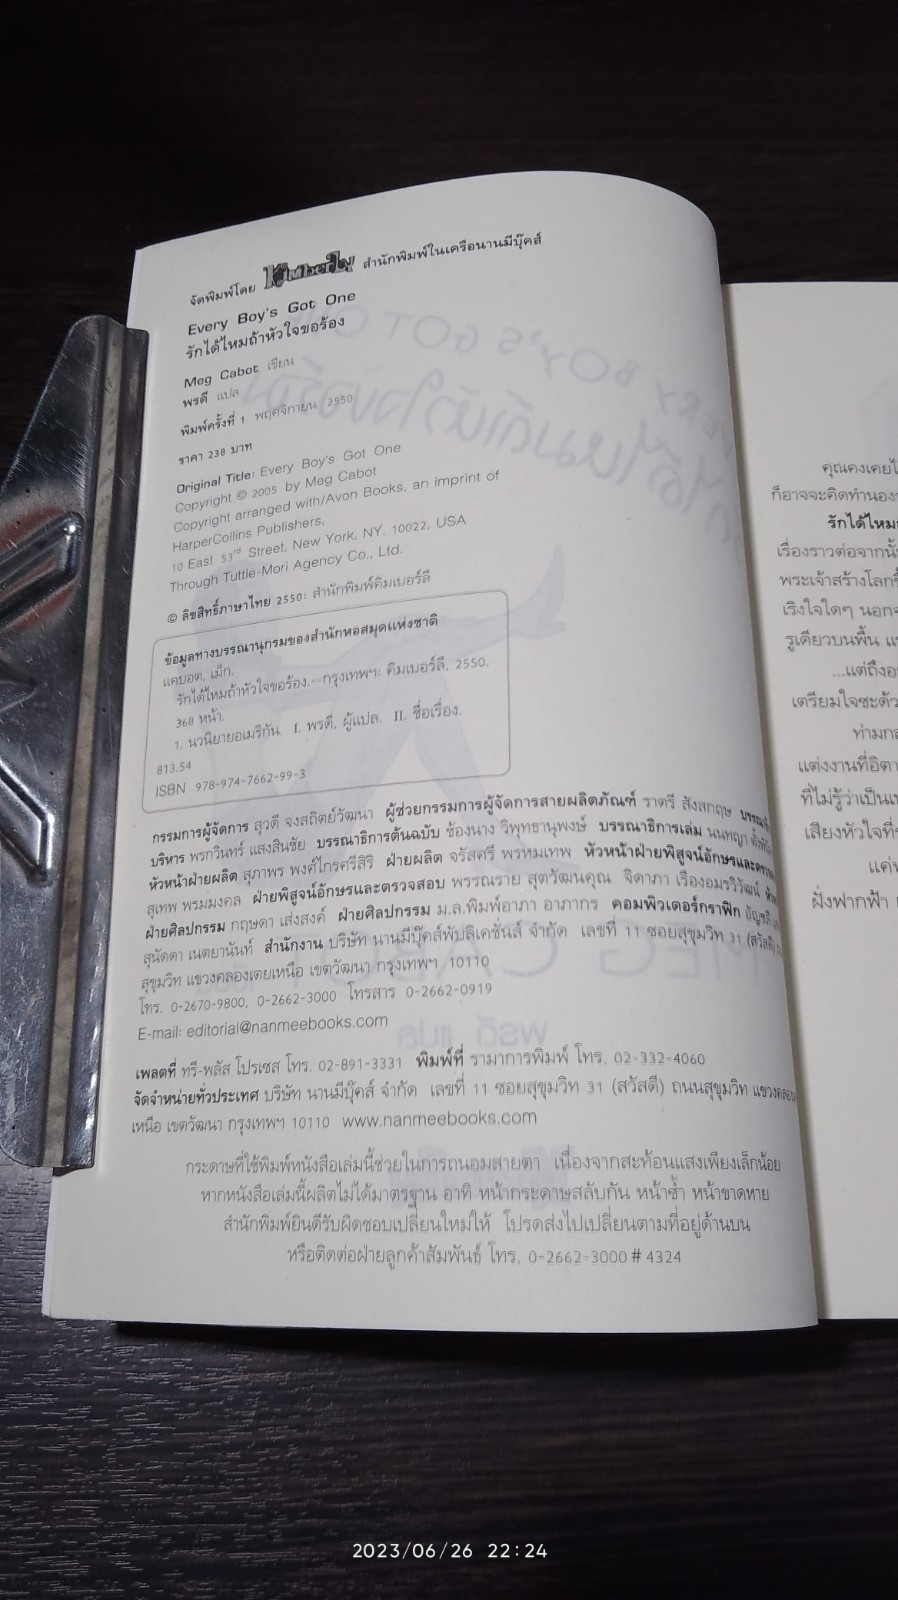 จัดพิมพ์โดย Kimberly สำนักพิมพ์ในเครือนานมีบุ๊คส์
Every Boy's Got One
รักได้ไหมถ้าหัวใจขอร้อง
Meg Cabot เขียน
พรดี แปล
พิมพ์ครั้งที่ 1 พฤศจิกายน 2550
ราคา 238 บาท
Original Title: Every Boy's Got One
Copyright © 2005 by Meg Cabot
Copyright arranged with/Avon Books, an imprint of
HarperCollins Publishers,
10 East 53rd Street, New York, NY. 10022, USA
Through Tuttle-Mori Agency Co., Ltd.
© ลิขสิทธิ์ภาษาไทย 2550: สำนักพิมพ์คิมเบอร์ลี
ข้อมูลทางบรรณานุกรมของสำนักหอสมุดแห่งชาติ
แคบอต, เม็ก.
รักได้ไหมถ้าหัวใจขอร้อง.--กรุงเทพฯ: คิมเบอร์ลี, 2550.
368 หน้า.
1. นวนิยายอเมริกัน. I. พรดี, ผู้แปล. II. ชื่อเรื่อง.
813.54
ISBN 978-974-7662-99-3
กรรมการผู้จัดการ สุวดี จงสถิตย์วัฒนา ผู้ช่วยกรรมการผู้จัดการสายผลิตภัณฑ์ ราตรี สังสกฤษ
บริหาร พรกวินทร์ แสงสินชัย บรรณาธิการต้นฉบับ ช้องนาง วิพุทธานุพงษ์ บรรณาธิการเล่ม นนทญา
หัวหน้าฝ่ายผลิต สุภาพร พงศ์ไกรศรีสิริ ฝ่ายผลิต จรัสศรี พรหมเทพ หัวหน้าฝ่ายพิสูจน์อักษรและตรวจสอบ
สุเทพ พรมมงคล ฝ่ายพิสูจน์อักษรและตรวจสอบ พรรณราย สุตวัฒนคุณ จิดาภา เรืองอมรวิวัฒน์
ฝ่ายศิลปกรรม กฤษดา เส่งสงค์ ฝ่ายศิลปกรรม ม.ล.พิมพ์อาภา อาภากร คอมพิวเตอร์กราฟิก
สุนัดดา เนตยานันท์ สำนักงาน บริษัท นานมีบุ๊คส์พับลิเคชั่นส์ จำกัด เลขที่ 11 ซอยสุขุมวิท 31 (สวัสดี)
สุขุมวิท แขวงคลองเตยเหนือ เขตวัฒนา กรุงเทพฯ 10110
โทร. 0-2670-9800, 0-2662-3000 โทรสาร 0-2662-0919
E-mail: editorial@nanmeebooks.com
เพลตที่ ทรี-พลัส โปรเซส โทร. 02-891-3331 พิมพ์ที่ รามาการพิมพ์ โทร. 02-332-4060
จัดจำหน่ายทั่วประเทศ บริษัท นานมีบุ๊คส์ จำกัด เลขที่ 11 ซอยสุขุมวิท 31 (สวัสดี) ถนนสุขุมวิท แขวงคลองเตย
เหนือ เขตวัฒนา กรุงเทพฯ 10110 www.nanmeebooks.com
กระดาษที่ใช้พิมพ์หนังสือเล่มนี้ช่วยในการถนอมสายตา เนื่องจากสะท้อนแสงเพียงเล็กน้อย
หากหนังสือเล่มนี้ผลิตไม่ได้มาตรฐาน อาทิ หน้ากระดาษสลับกัน หน้าซ้ำ หน้าขาดหาย
สำนักพิมพ์ยินดีรับผิดชอบเปลี่ยนใหม่ให้ โปรดส่งไปเปลี่ยนตามที่อยู่ด้านบน
หรือติดต่อฝ่ายลูกค้าสัมพันธ์ โทร. 0-2662-3000 # 4324
คุณคงเคย
ก็อาจจะคิดทำนอง
รักได้ไหม
เรื่องราวต่อจากนั้น
พระเจ้าสร้างโลก
เริงใจใดๆ
รูเดียวบนพื้น
...แต่ถึง
เตรียมใจซะ
แต่งงานที่
ที่ไม่รู้ว่าเป็น
เสียงหัวใจที่
ฝั่งฟากฟ้า
2023/06/26 22:24